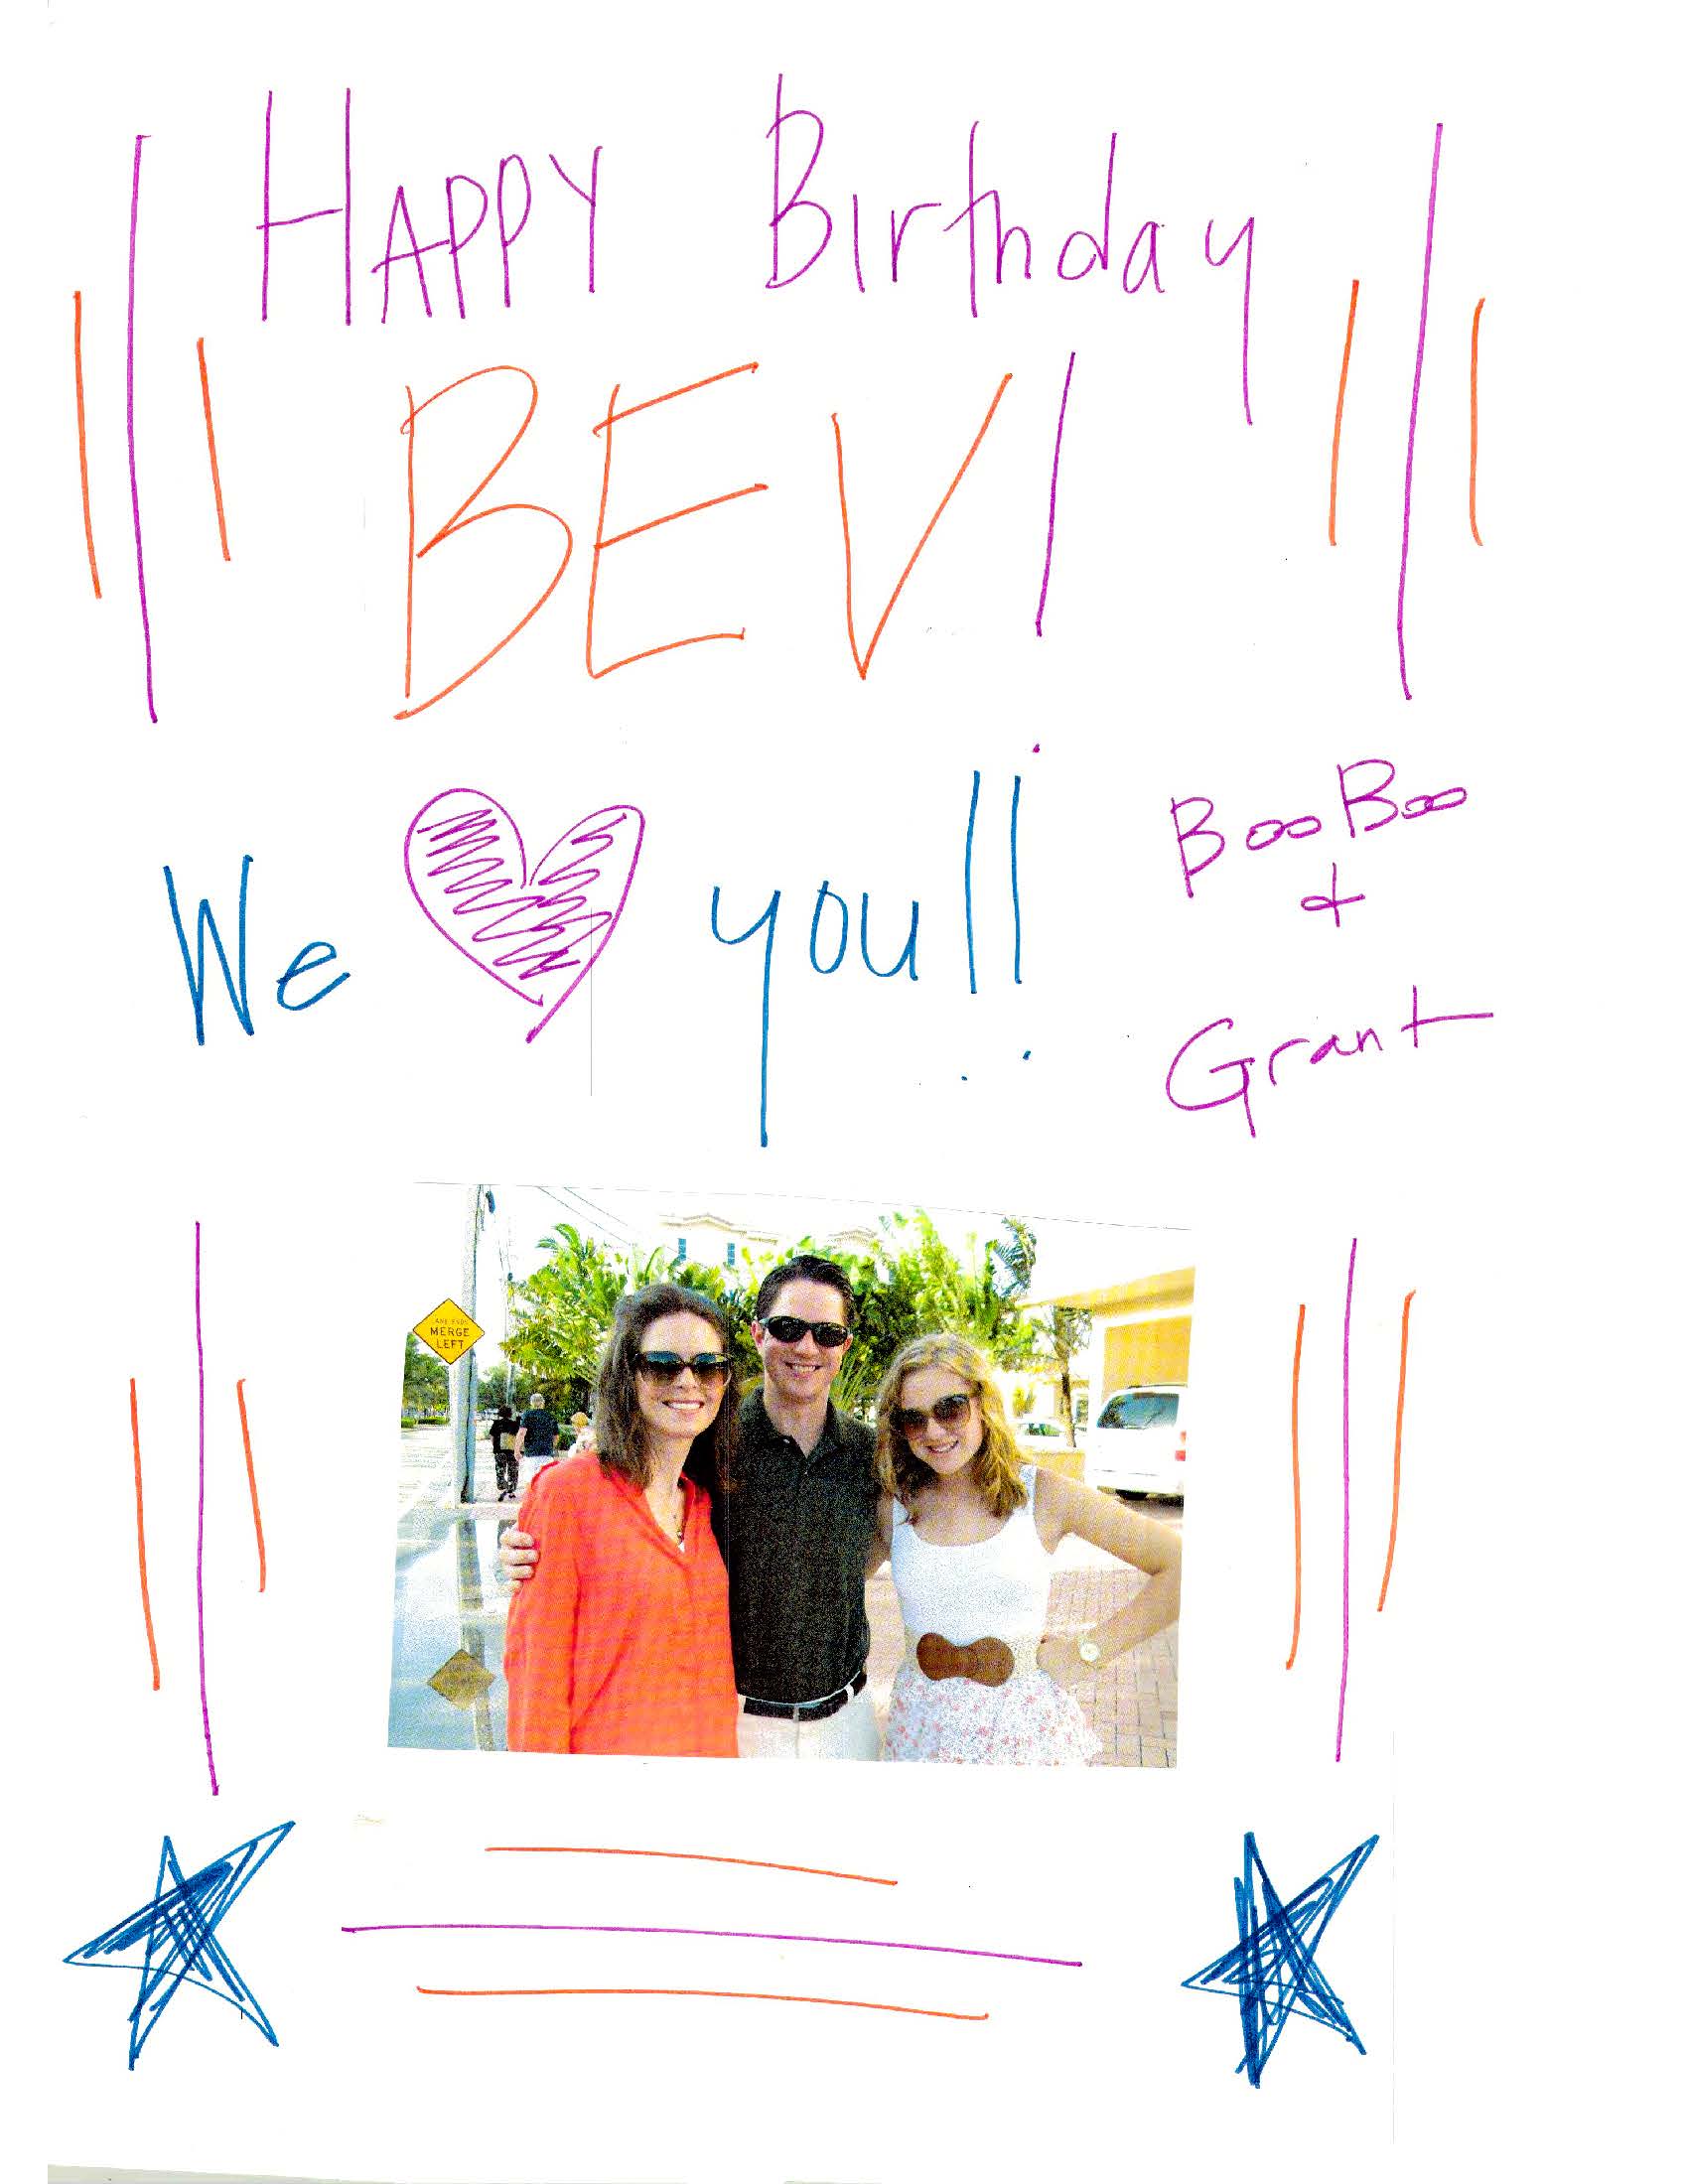 HAPPY Birthday
BEV!
We ♥ you!!
BooBoo
+
Grant
LANE ENDS
MERGE
LEFT